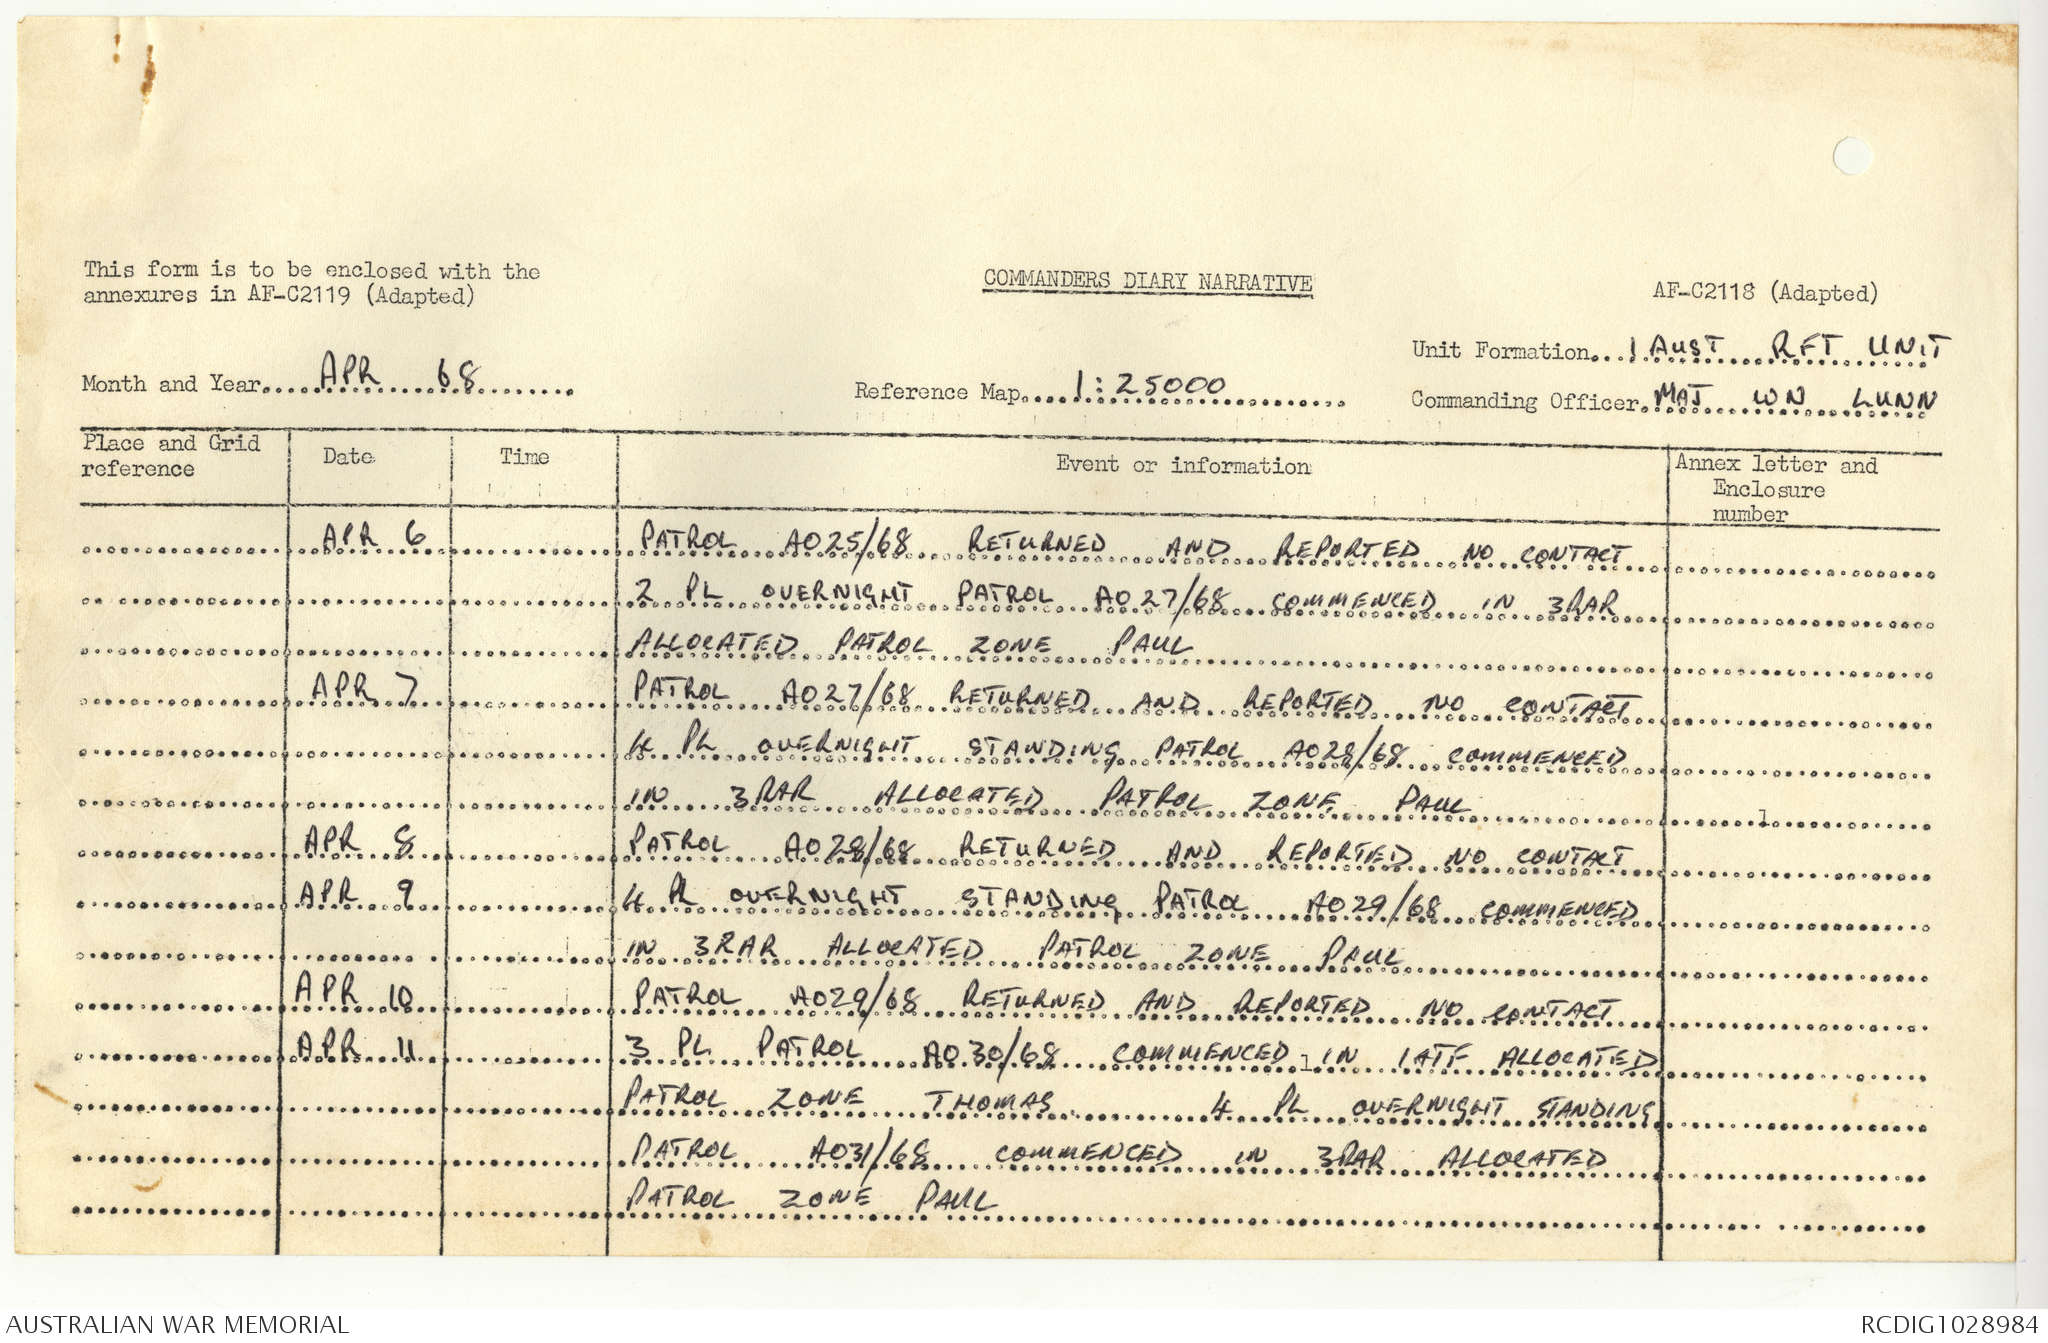 This form is to be enclosed with the
annexures in AF-C2119 (Adapted)
COMMANDERS DIARY NARRATIVE
AF-C2118 (Adapted)
Month and Year APR 68
Reference Map 1:25000
Unit Formation 1 AUST RFT UNIT
Commanding Officer MAJ WN LUNN
Place and Grid reference Date Time Event or information Annex letter and Enclosure number
APR 6 PATROL AO25/68 RETURNED AND REPORTED NO CONTACT
2 PL OVERNIGHT PATROL AO27/68 COMMENCED IN 3RAR
ALLOCATED PATROL ZONE PAUL
APR 7 PATROL AO27/68 RETURNED AND REPORTED NO CONTACT
4 PL OVERNIGHT STANDING PATROL AO28/68 COMMENCED
IN 3RAR ALLOCATED PATROL ZONE PAUL
APR 8 PATROL AO28/68 RETURNED AND REPORTED NO CONTACT
APR 9 4 PL OVERNIGHT STANDING PATROL AO29/68 COMMENCED
IN 3RAR ALLOCATED PATROL ZONE PAUL
APR 10 PATROL AO29/68 RETURNED AND REPORTED NO CONTACT
APR 11 3 PL PATROL AO30/68 COMMENCED IN 1ATF ALLOCATED
PATROL ZONE THOMAS. 4 PL OVERNIGHT STANDING
PATROL AO31/68 COMMENCED IN 3RAR ALLOCATED
PATROL ZONE PAUL
AUSTRALIAN WAR MEMORIAL
RCDIG1028984